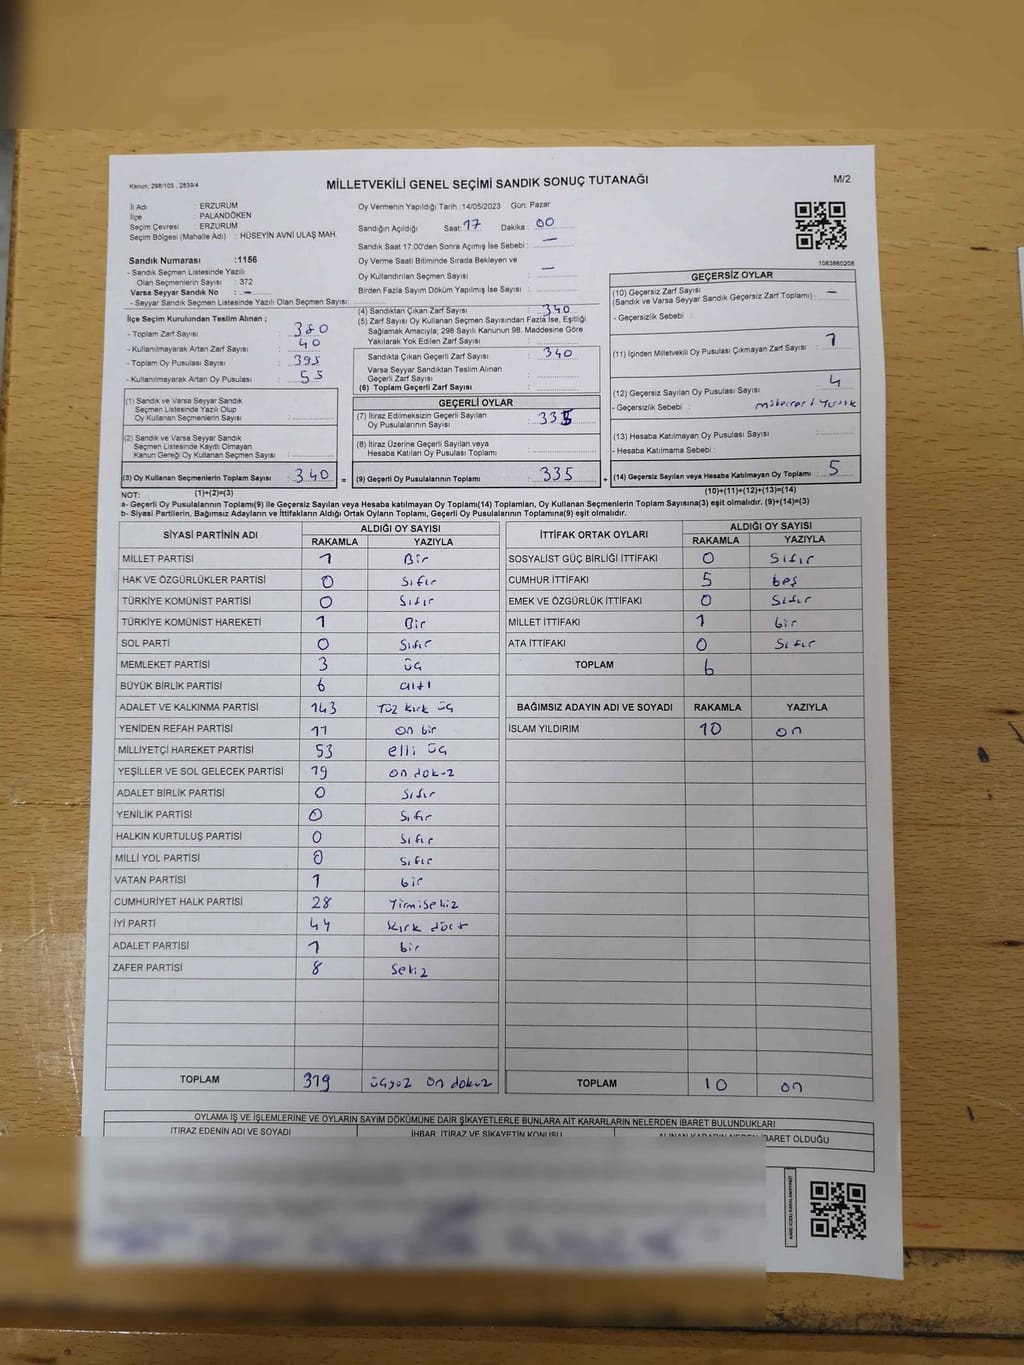 Kanun; 298/105 , 2839/4
MİLLETVEKİLİ GENEL SEÇİMİ SANDIK SONUÇ TUTANAĞI
M/2
İl Adı : ERZURUM
İlçe : PALANDÖKEN
Seçim Çevresi : ERZURUM
Seçim Bölgesi (Mahalle Adı) : HÜSEYİN AVNİ ULAŞ MAH.
Sandık Numarası :1156
- Sandık Seçmen Listesinde Yazılı
Olan Seçmenlerin Sayısı : 372
Varsa Seyyar Sandık No : —
- Seyyar Sandık Seçmen Listesinde Yazılı Olan Seçmen Sayısı:
Oy Vermenin Yapıldığı Tarih :14/05/2023 Gün: Pazar
Sandığın Açıldığı Saat: 17 Dakika : 00
Sandık Saat 17:00'den Sonra Açımış İse Sebebi : —
Oy Verme Saati Bitiminde Sırada Bekleyen ve
Oy Kullandırılan Seçmen Sayısı : —
Birden Fazla Sayım Döküm Yapılmış İse Sayısı :
1083860208
İlçe Seçim Kurulundan Teslim Alınan ;
- Toplam Zarf Sayısı : 380
- Kullanılmayarak Artan Zarf Sayısı : 40
- Toplam Oy Pusulası Sayısı : 395
- Kullanılmayarak Artan Oy Pusulası : 55
(1) Sandık ve Varsa Seyyar Sandık
Seçmen Listesinde Yazılı Olup
Oy Kullanan Seçmenlerin Sayısı :
(2) Sandık ve Varsa Seyyar Sandık
Seçmen Listesinde Kayıtlı Olmayan
Kanun Gereği Oy Kullanan Seçmen Sayısı :
(3) Oy Kullanan Seçmenlerin Toplam Sayısı : 340 =
(4) Sandıktan Çıkan Zarf Sayısı : 340
(5) Zarf Sayısı Oy Kullanan Seçmen Sayısından Fazla İse, Eşitliği
Sağlamak Amacıyla; 298 Sayılı Kanunun 98. Maddesine Göre
Yakılarak Yok Edilen Zarf Sayısı :
Sandıkta Çıkan Geçerli Zarf Sayısı : 340
Varsa Seyyar Sandıktan Teslim Alınan
Geçerli Zarf Sayısı :
(6) Toplam Geçerli Zarf Sayısı :
GEÇERLİ OYLAR
(7) İtiraz Edilmeksizin Geçerli Sayılan
Oy Pusulalarının Sayısı : 335
(8) İtiraz Üzerine Geçerli Sayılan veya
Hesaba Katılan Oy Pusulası Toplamı :
(9) Geçerli Oy Pusulalarının Toplamı : 335 +
GEÇERSİZ OYLAR
(10) Geçersiz Zarf Sayısı
(Sandık ve Varsa Seyyar Sandık Geçersiz Zarf Toplamı) : —
- Geçersizlik Sebebi :
(11) İçinden Milletvekili Oy Pusulası Çıkmayan Zarf Sayısı : 1
(12) Geçersiz Sayılan Oy Pusulası Sayısı : 4
- Geçersizlik Sebebi :
(13) Hesaba Katılmayan Oy Pusulası Sayısı :
- Hesaba Katılmama Sebebi :
(14) Geçersiz Sayılan veya Hesaba Katılmayan Oy Toplamı : 5
NOT: (1)+(2)=(3) (10)+(11)+(12)+(13)=(14)
a- Geçerli Oy Pusulasının Toplamı(9) ile Geçersiz Sayılan veya Hesaba katılmayan Oy Toplamı(14) Toplamları, Oy Kullanan Seçmenlerin Toplam Sayısına(3) eşit olmalıdır. (9)+(14)=(3)
b- Siyasi Partilerin, Bağımsız Adayların ve İttifakların Aldığı Ortak Oyların Toplamı, Geçerli Oy Pusulalarının Toplamına(9) eşit olmalıdır.
SİYASİ PARTİNİN ADI ALDIĞI OY SAYISI
RAKAMLA YAZIYLA
MİLLET PARTİSİ 1 Bir
HAK VE ÖZGÜRLÜKLER PARTİSİ 0 Sıfır
TÜRKİYE KOMÜNİST PARTİSİ 0 Sıfır
TÜRKİYE KOMÜNİST HAREKETİ 1 Bir
SOL PARTİ 0 Sıfır
MEMLEKET PARTİSİ 3 üç
BÜYÜK BİRLİK PARTİSİ 6 altı
ADALET VE KALKINMA PARTİSİ 143 Yüz kırk üç
YENİDEN REFAH PARTİSİ 11 on bir
MİLLİYETÇİ HAREKET PARTİSİ 53 elli üç
YEŞİLLER VE SOL GELECEK PARTİSİ 19 on dokuz
ADALET BİRLİK PARTİSİ 0 Sıfır
YENİLİK PARTİSİ 0 Sıfır
HALKIN KURTULUŞ PARTİSİ 0 Sıfır
MİLLİ YOL PARTİSİ 0 Sıfır
VATAN PARTİSİ 1 bir
CUMHURİYET HALK PARTİSİ 28 Yirmisekiz
İYİ PARTİ 44 kırk dört
ADALET PARTİSİ 1 bir
ZAFER PARTİSİ 8 Sekiz
TOPLAM 319 üçyüz on dokuz
İTTİFAK ORTAK OYLARI ALDIĞI OY SAYISI
RAKAMLA YAZIYLA
SOSYALİST GÜÇ BİRLİĞİ İTTİFAKI 0 Sıfır
CUMHUR İTTİFAKI 5 beş
EMEK VE ÖZGÜRLÜK İTTİFAKI 0 Sıfır
MİLLET İTTİFAKI 1 bir
ATA İTTİFAKI 0 Sıfır
TOPLAM 6
BAĞIMSIZ ADAYIN ADI VE SOYADI RAKAMLA YAZIYLA
İSLAM YILDIRIM 10 on
TOPLAM 10 on
OYLAMA İŞ VE İŞLEMLERİNE VE OYLARIN SAYIM DÖKÜMÜNE DAİR ŞİKAYETLERLE BUNLARA AİT KARARLARIN NELERDEN İBARET BULUNDUKLARI
İTİRAZ EDENİN ADI VE SOYADI İHBAR, İTİRAZ VE ŞİKAYETİN KONUSU ALINAN KARARIN NEDEN İBARET OLDUĞU